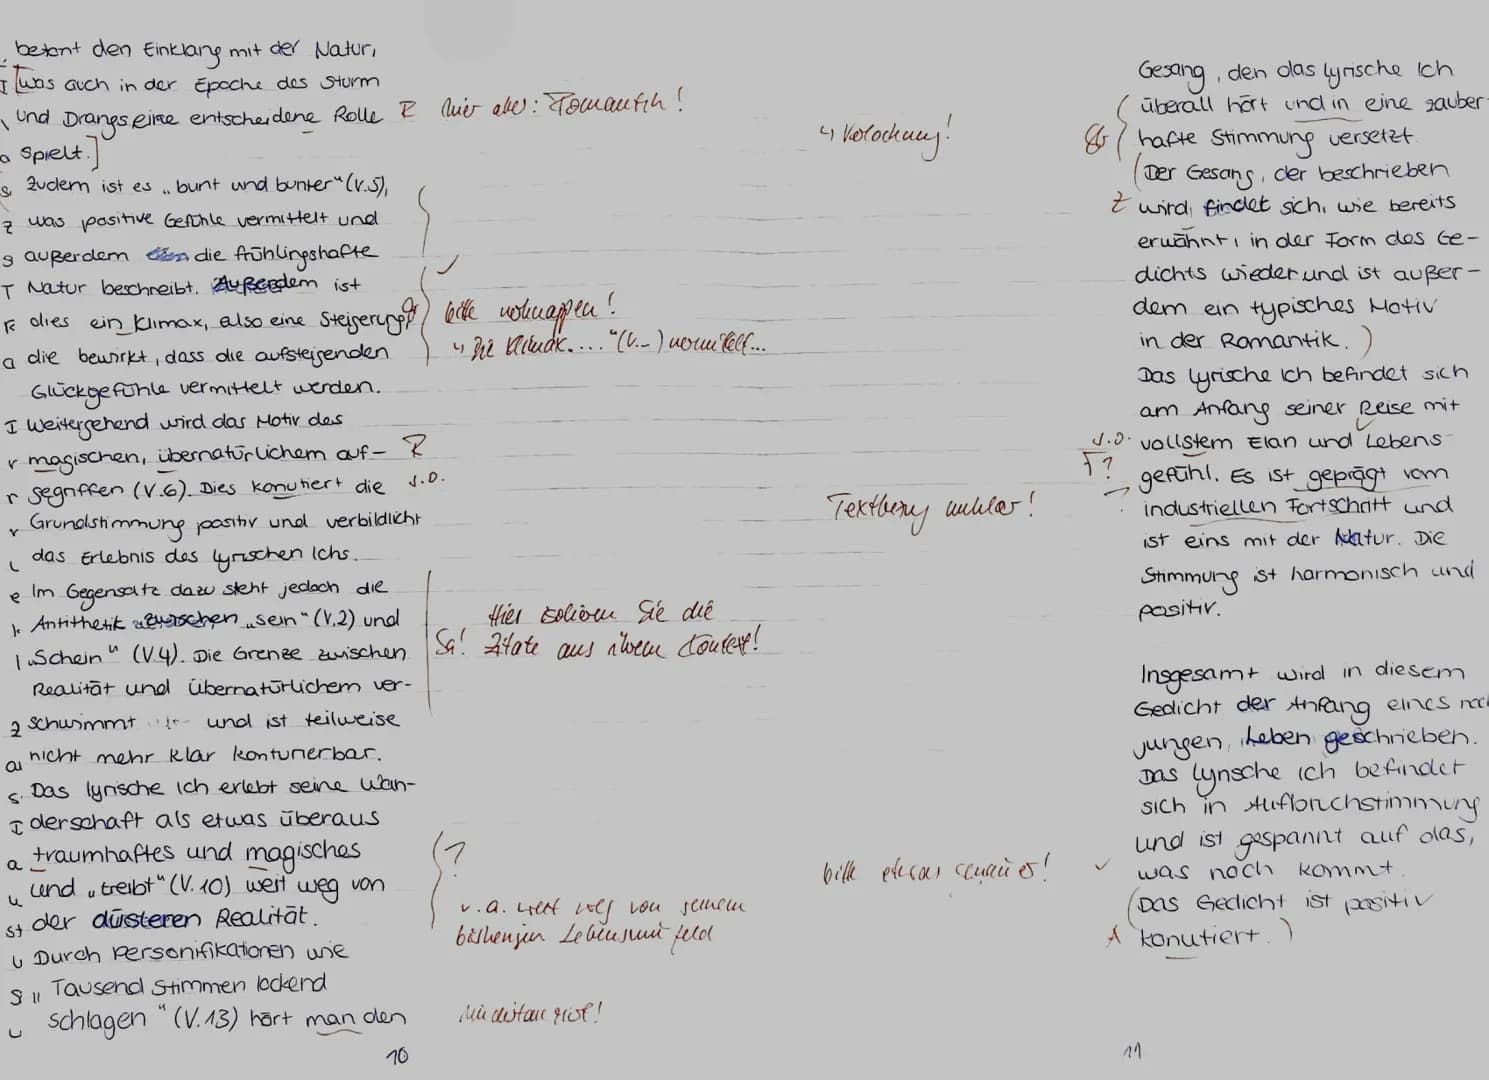 betont den Einklang mit der Natur,
[was auch in der Epoche des Sturm
und Drangs eine entscheidene Rolle
R hier aber: Romantik!
spielt.]
Zudem ist es „bunt und bunter" (V.5),
was positive Gefühle vermittelt und
außerdem die frühlingshafte
Natur beschreibt. Außerdem ist
dies ein Klimax, also eine Steigerung,
Gr
die bewirkt, dass die aufsteigenden
Glückgefühle vermittelt werden.
bitte verknappen!
↳ Die Klimax „..."(V...) vermittelt...
Weitergehend wird das Motiv des
magischen, übernatürlichem auf-
R
gegriffen (V.6). Dies konutiert die
s.o.
Grundstimmung positiv und verbildlicht
das Erlebnis des lyrischen Ichs.
Im Gegensatz dazu steht jedoch die
Antithetik zwischen „sein" (V.2) und
„Schein" (V.4). Die Grenze zwischen
Realität und übernatürlichem ver-
schwimmt und ist teilweise
nicht mehr klar konturierbar.
Hier isolieren Sie die
Sa! Zitate aus ihrem Kontext!
Das lyrische Ich erlebt seine Wan-
derschaft als etwas überaus
traumhaftes und magisches
und „treibt" (V.10) weit weg von
der düsteren Realität.
?
v.a. weit weg von seinem
bisherigen Lebensumfeld
Durch Personifikationen wie
„Tausend Stimmen lockend
schlagen" (V.13) hört man den
10
↳ Verlockung!
Textbezug unklar!
bitte etwas genauer!
Gesang, den das lyrische Ich
überall hört und in eine zauber-
hafte Stimmung versetzt.
(Der Gesang, der beschrieben
Z wird, findet sich, wie bereits
erwähnt, in der Form des Ge-
dichts wieder und ist außer-
dem ein typisches Motiv
in der Romantik.)
Das lyrische Ich befindet sich
am Anfang seiner Reise mit
s.o. vollstem Elan und Lebens-
F? gefühl. Es ist geprägt vom
industriellen Fortschritt und
ist eins mit der Natur. Die
Stimmung ist harmonisch und
positiv.
Insgesamt wird in diesem
Gedicht der Anfang eines noch
jungen, Leben geschrieben.
Das lyrische Ich befindet
sich in Aufbruchstimmung
und ist gespannt auf das,
was noch kommt.
(Das Gedicht ist positiv
A konutiert.)
11